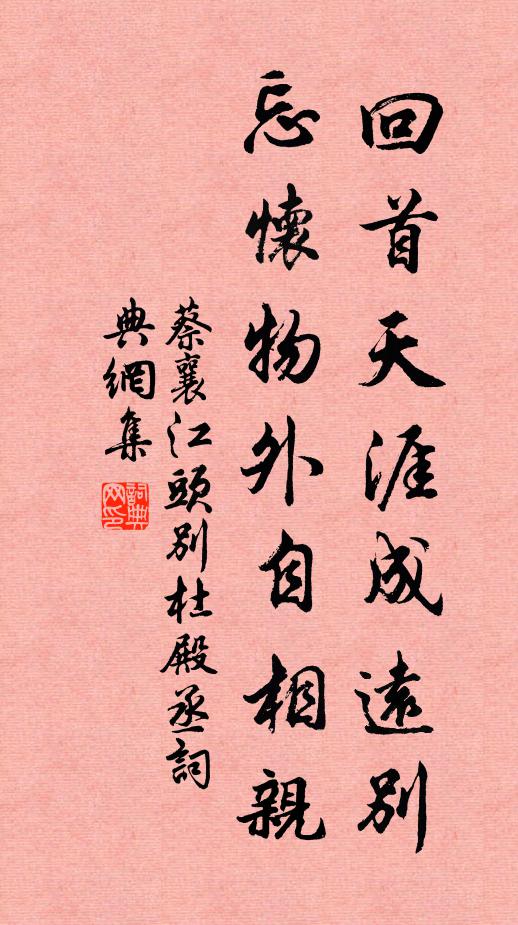 回首天涯成遠別
忘懷物外自相親
蔡襄江頭別杜殿丞詞
典網集
詞典
网印